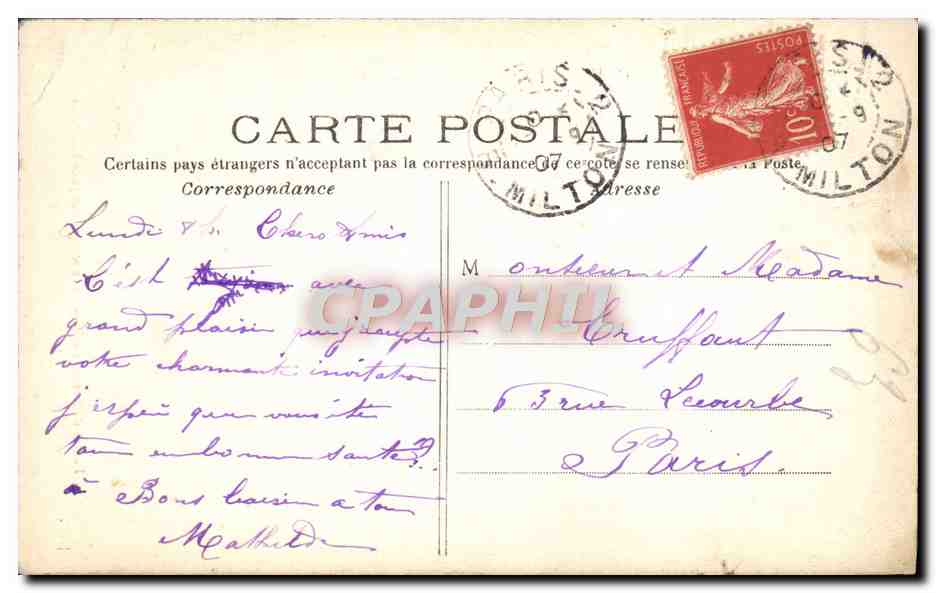 CARTE POSTALE
Certains pays étrangers n'acceptant pas la correspondance de ce côté, se rense la Poste
Correspondance
Adresse
POSTES
REPUBLIQUE FRANÇAISE
10c
PARIS 12
9
07
MILTON
PARIS 12
9
07
MILTON
Lundi Chers Amis
C'est avec
grand plaisir que j'accepte
votre charmante invitation
j'espère que vous ête
tous en bonne santé
Bons baisers a tous
Mathilde
Monsieur et Madame
Truffaut
63 rue Lecourbe
Paris.
CPAPHIL